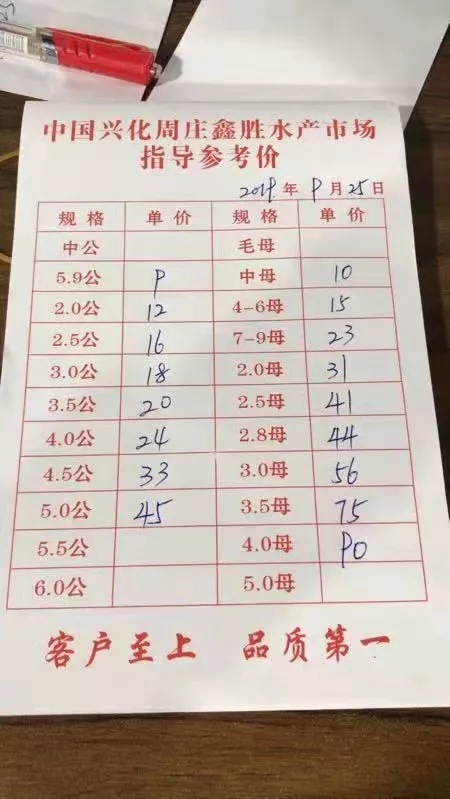 中国兴化周庄鑫胜水产市场
指导参考价
2019年9月25日
规格 单价 规格 单价
中公 毛母
5.9公 9 中母 10
2.0公 12 4-6母 15
2.5公 16 7-9母 23
3.0公 18 2.0母 31
3.5公 20 2.5母 41
4.0公 24 2.8母 44
4.5公 33 3.0母 56
5.0公 45 3.5母 75
5.5公 4.0母 90
6.0公 5.0母
客户至上 品质第一